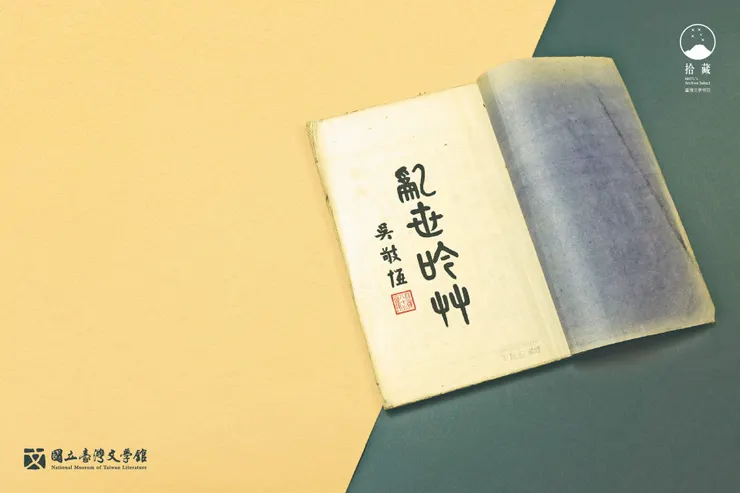 拾藏
臺灣文學物語
亂世吟艸
吳敬恆
國立臺灣文學館
National Museum of Taiwan Literature